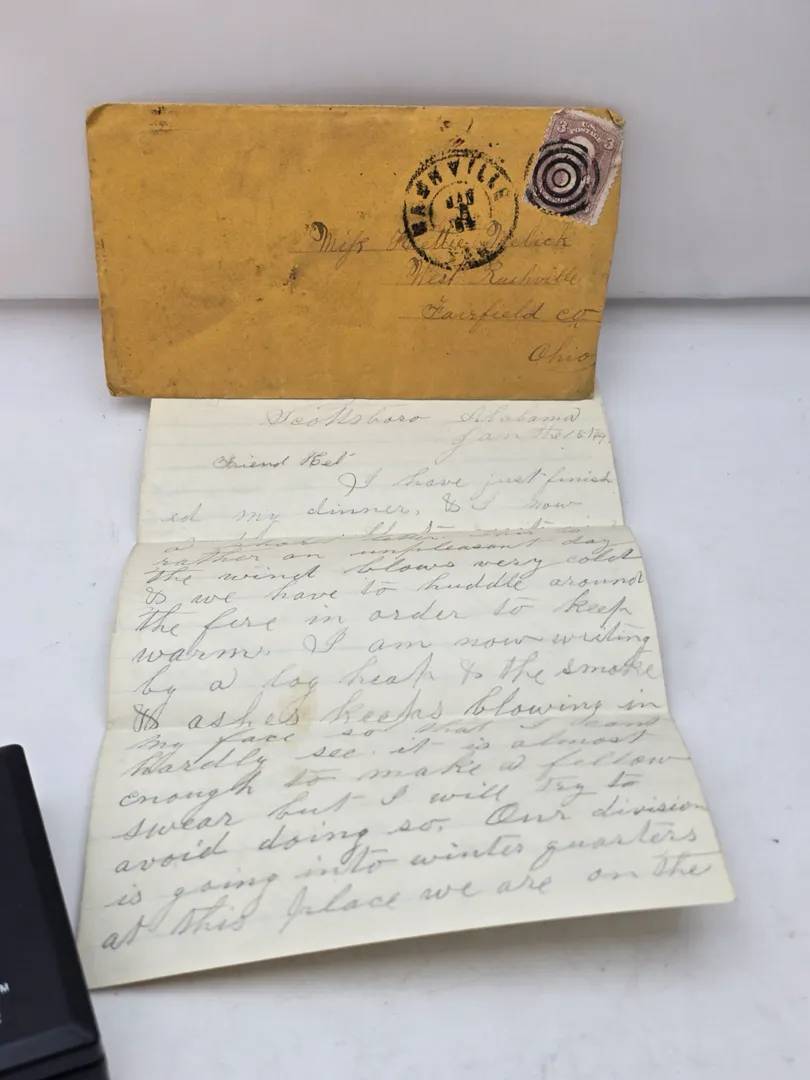 NASHVILLE
JAN
3 U.S. POSTAGE 3
Miss Hettie Melick
West Rushville
Fairfield co
Ohio
Scottsboro Alabama
Jan
Friend Het
I have just finish
ed my dinner, & I now
a short letter.
rather an unpleasant day
the wind blows very cold
& we have to huddle around
the fire in order to keep
warm. I am now writing
by a log heap & the smoke
& ashes keeps blowing in
my face so that I cant
hardly see. it is almost
enough to make a fellow
swear but I will try to
avoid doing so. Our division
is going into winter quarters
at this place we are on the
M